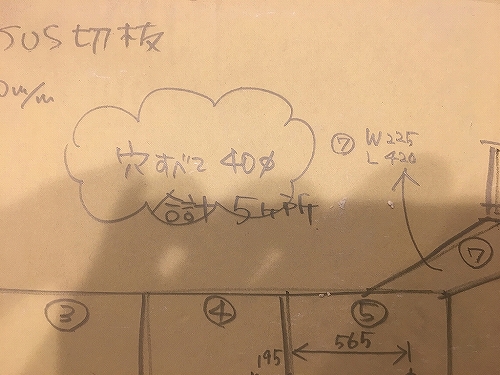 SUS切板
0m/m
穴すべて 40φ
合計 5ヶ所
⑦ W225
L 420
⑦
③
④
⑤
565
195